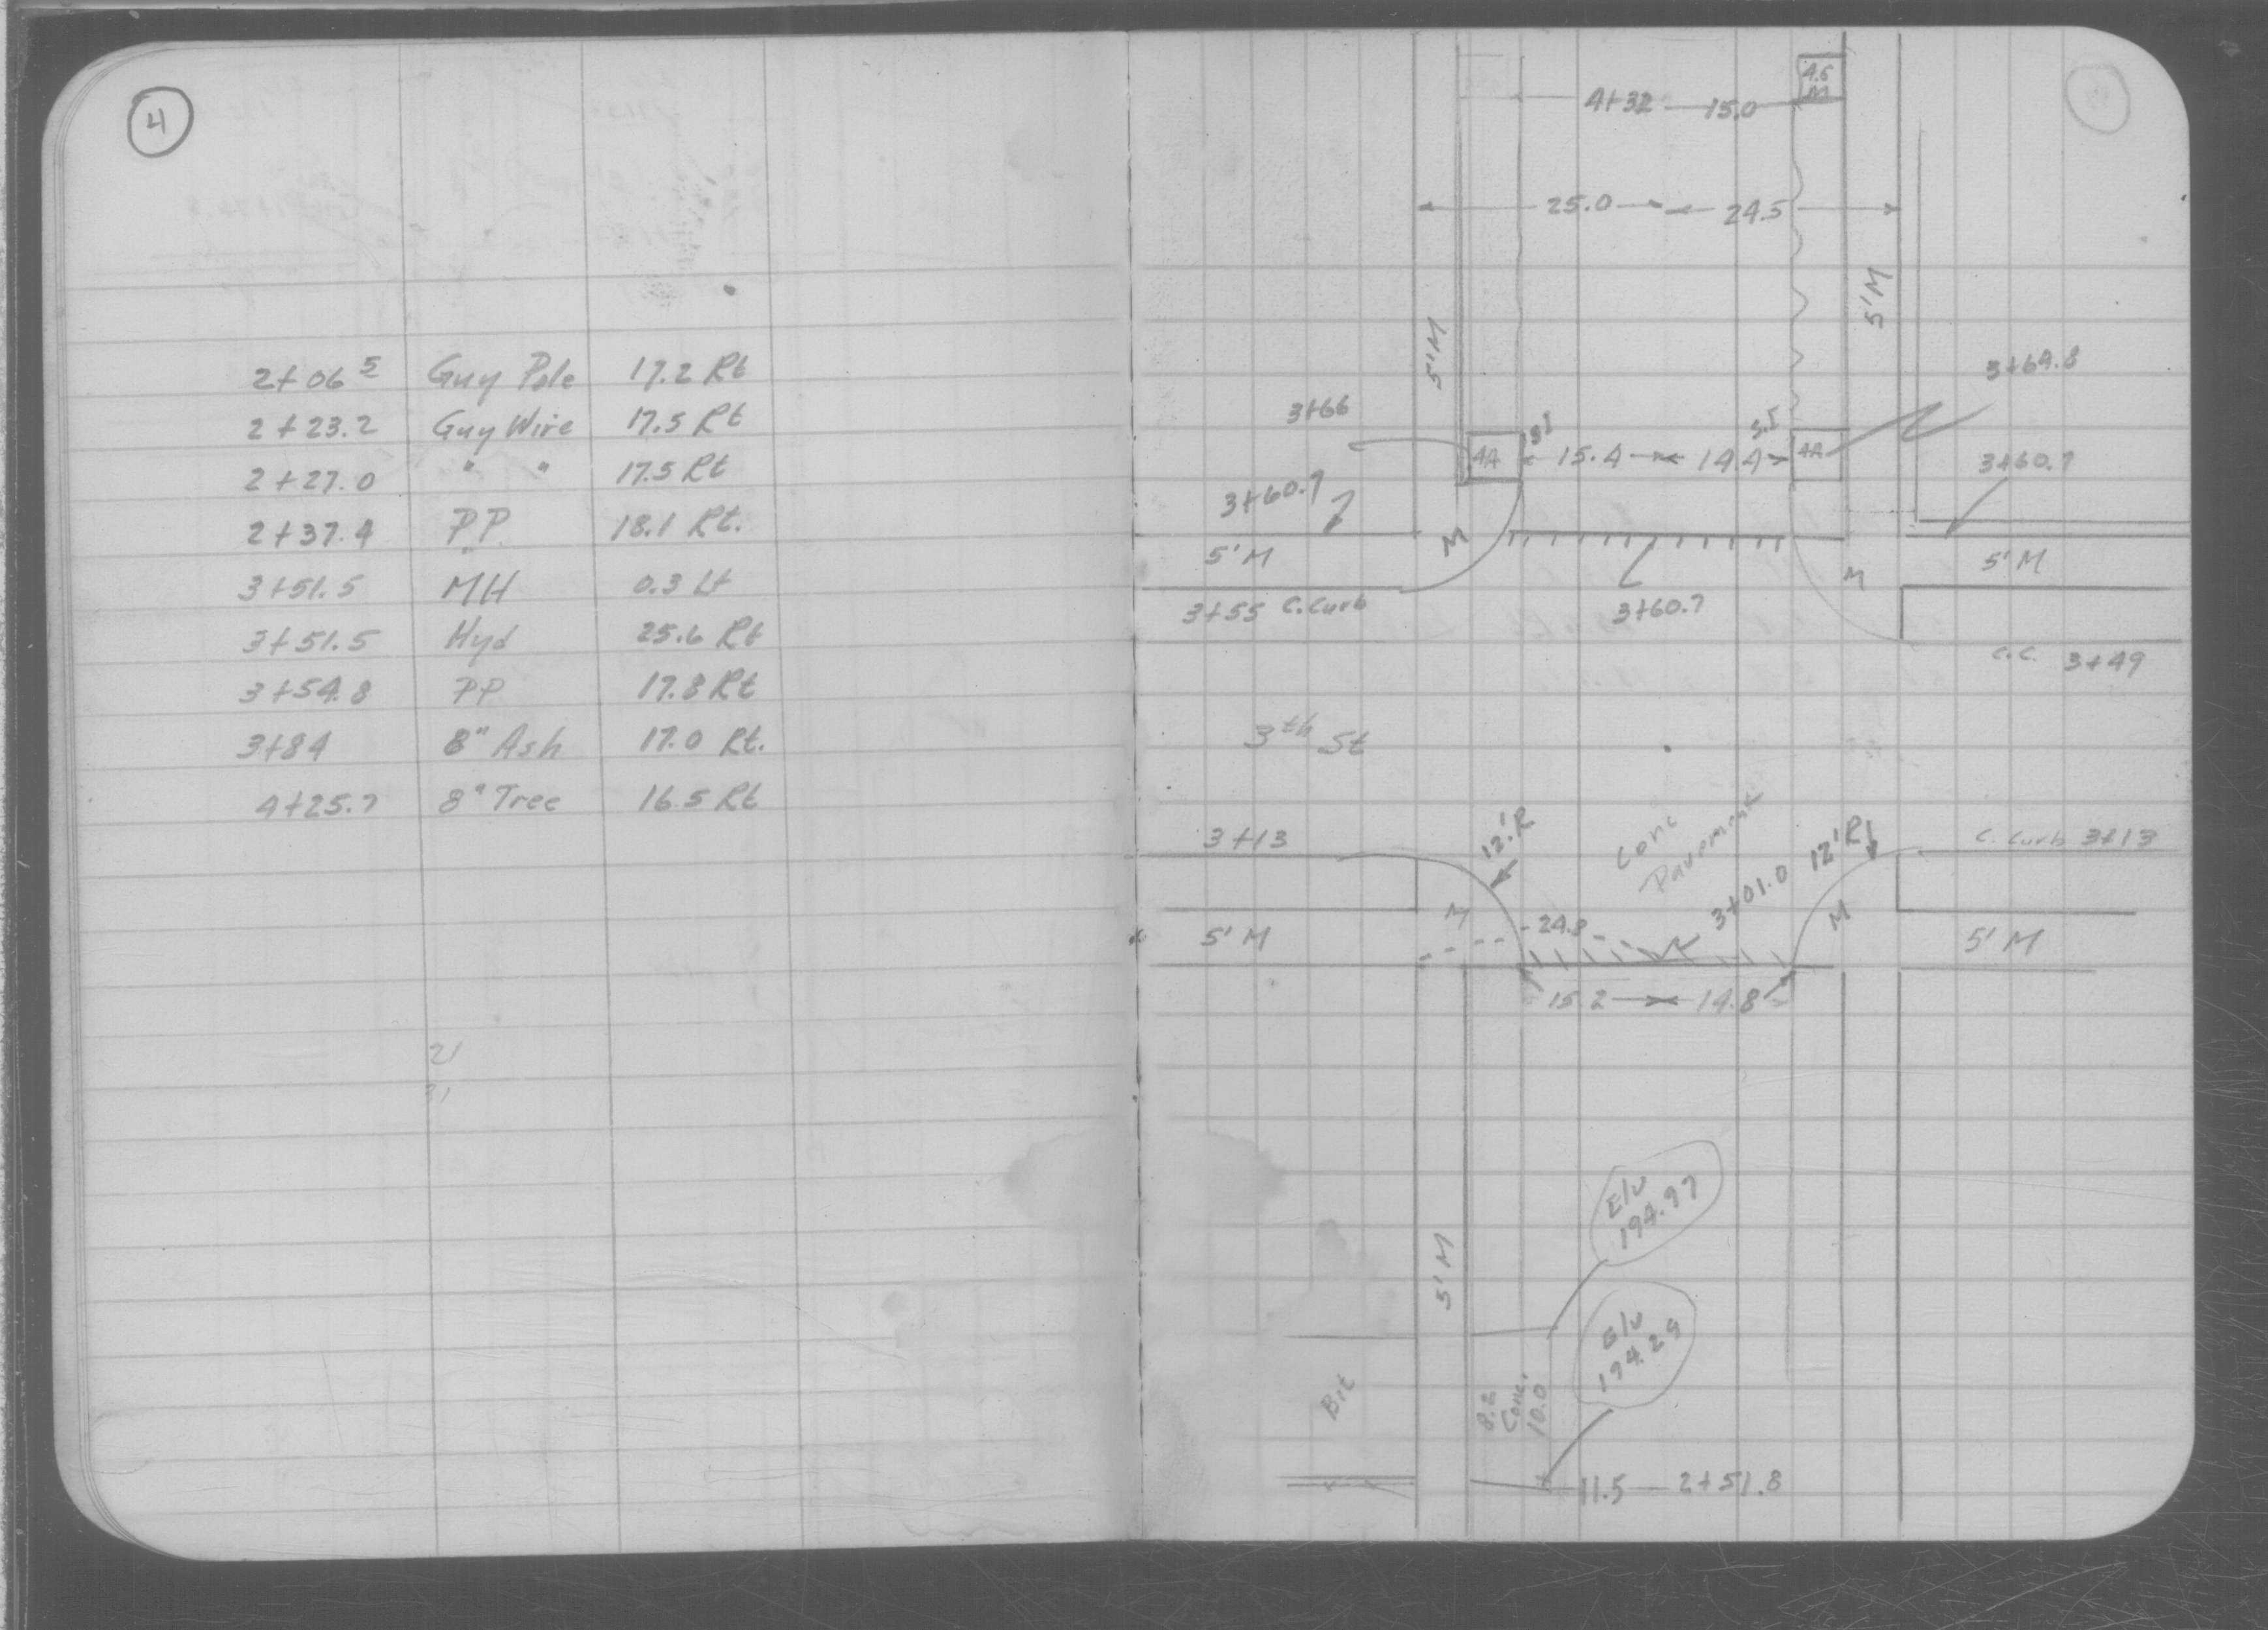 4
2+06 5 Guy Pole 17.2 Rt
2+23.2 Guy Wire 17.5 Rt
2+27.0 " " 17.5 Rt
2+37.4 PP. 18.1 Rt.
3+51.5 MH 0.3 Lt
3+51.5 Hyd 25.6 Rt
3+54.8 PP 17.8 Rt
3+84 8" Ash 17.0 Rt.
4+25.7 8" Tree 16.5 Rt
21
4.5
M
4+32 15.0
25.0 24.5
5'M 5'M
3+64.8
3+66
4A 15.4 14.4 4A
3+60.7
3+60.7
M
5'M M 5'M
3+55 C.Curb 3+60.7
C.C. 3+49
3th St
Conc
Pavement
3+13 12'R 12'R C. Curb 3+13
3+01.0
M M
24.8
5'M 5'M
15.2 14.8
Elv
194.97
5'M
Elv
194.29
Bit
8.2
Conc.
10.0
11.5 2+51.8